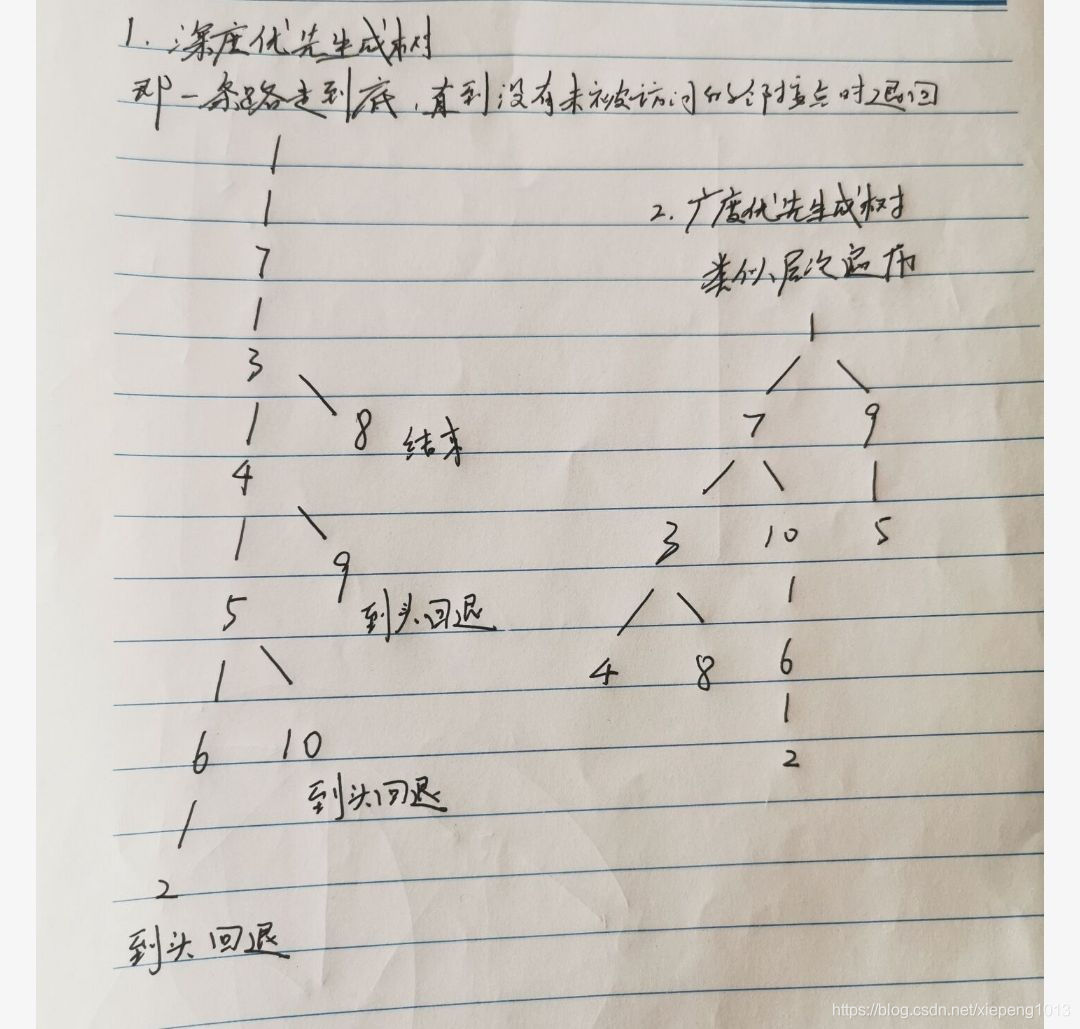 1. 深度优先生成树
即一条路走到底，直到没有未被访问的邻接点时退回
1
7
3
8 结束
4
9
到头回退
5
6 10
到头回退
2
到头回退
2. 广度优先生成树
类似层次遍历
1
7 9
3 10 5
4 8 6
2
https://blog.csdn.net/xiepeng1013